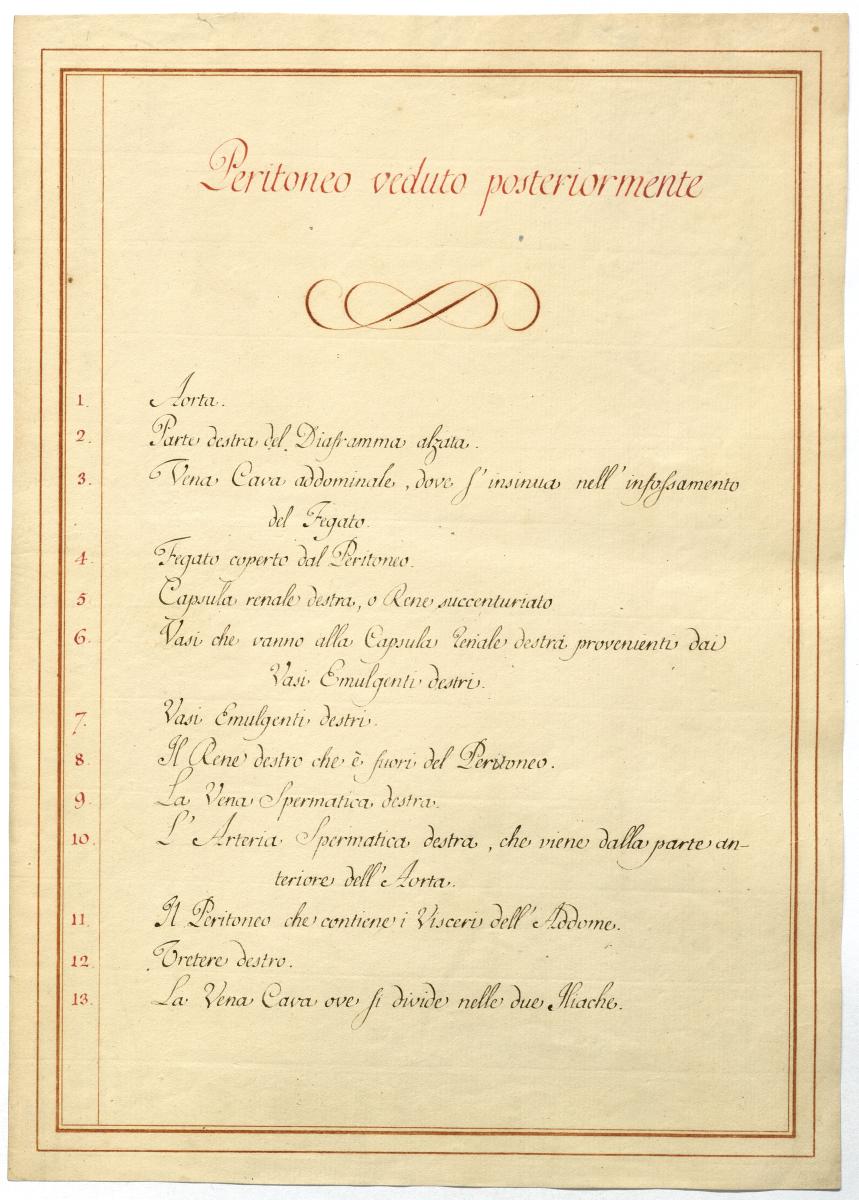 Peritoneo veduto posteriormente
1. Aorta.
2. Parte destra del Diaframma alzata.
3. Vena Cava addominale, dove s'insinua nell'infossamento
del Fegato.
4. Fegato coperto dal Peritoneo.
5 Capsula renale destra, o Rene succenturiato
6. Vasi che vanno alla Capsula renale destra provenienti dai
Vasi Emulgenti destri.
7. Vasi Emulgenti destri.
8. Il Rene destro che è fuori del Peritoneo.
9. La Vena Spermatica destra.
10. L'Arteria Spermatica destra, che viene dalla parte an-
teriore dell'Aorta.
11. Il Peritoneo che contiene i Visceri dell'Addome.
12. Uretere destro.
13. La Vena Cava ove si divide nelle due Iliache.